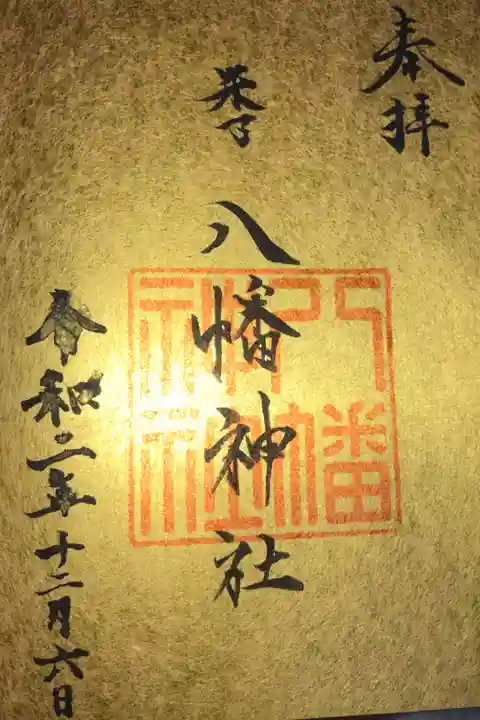 奉拝
八幡神社
八幡神社
令和二年十二月六日